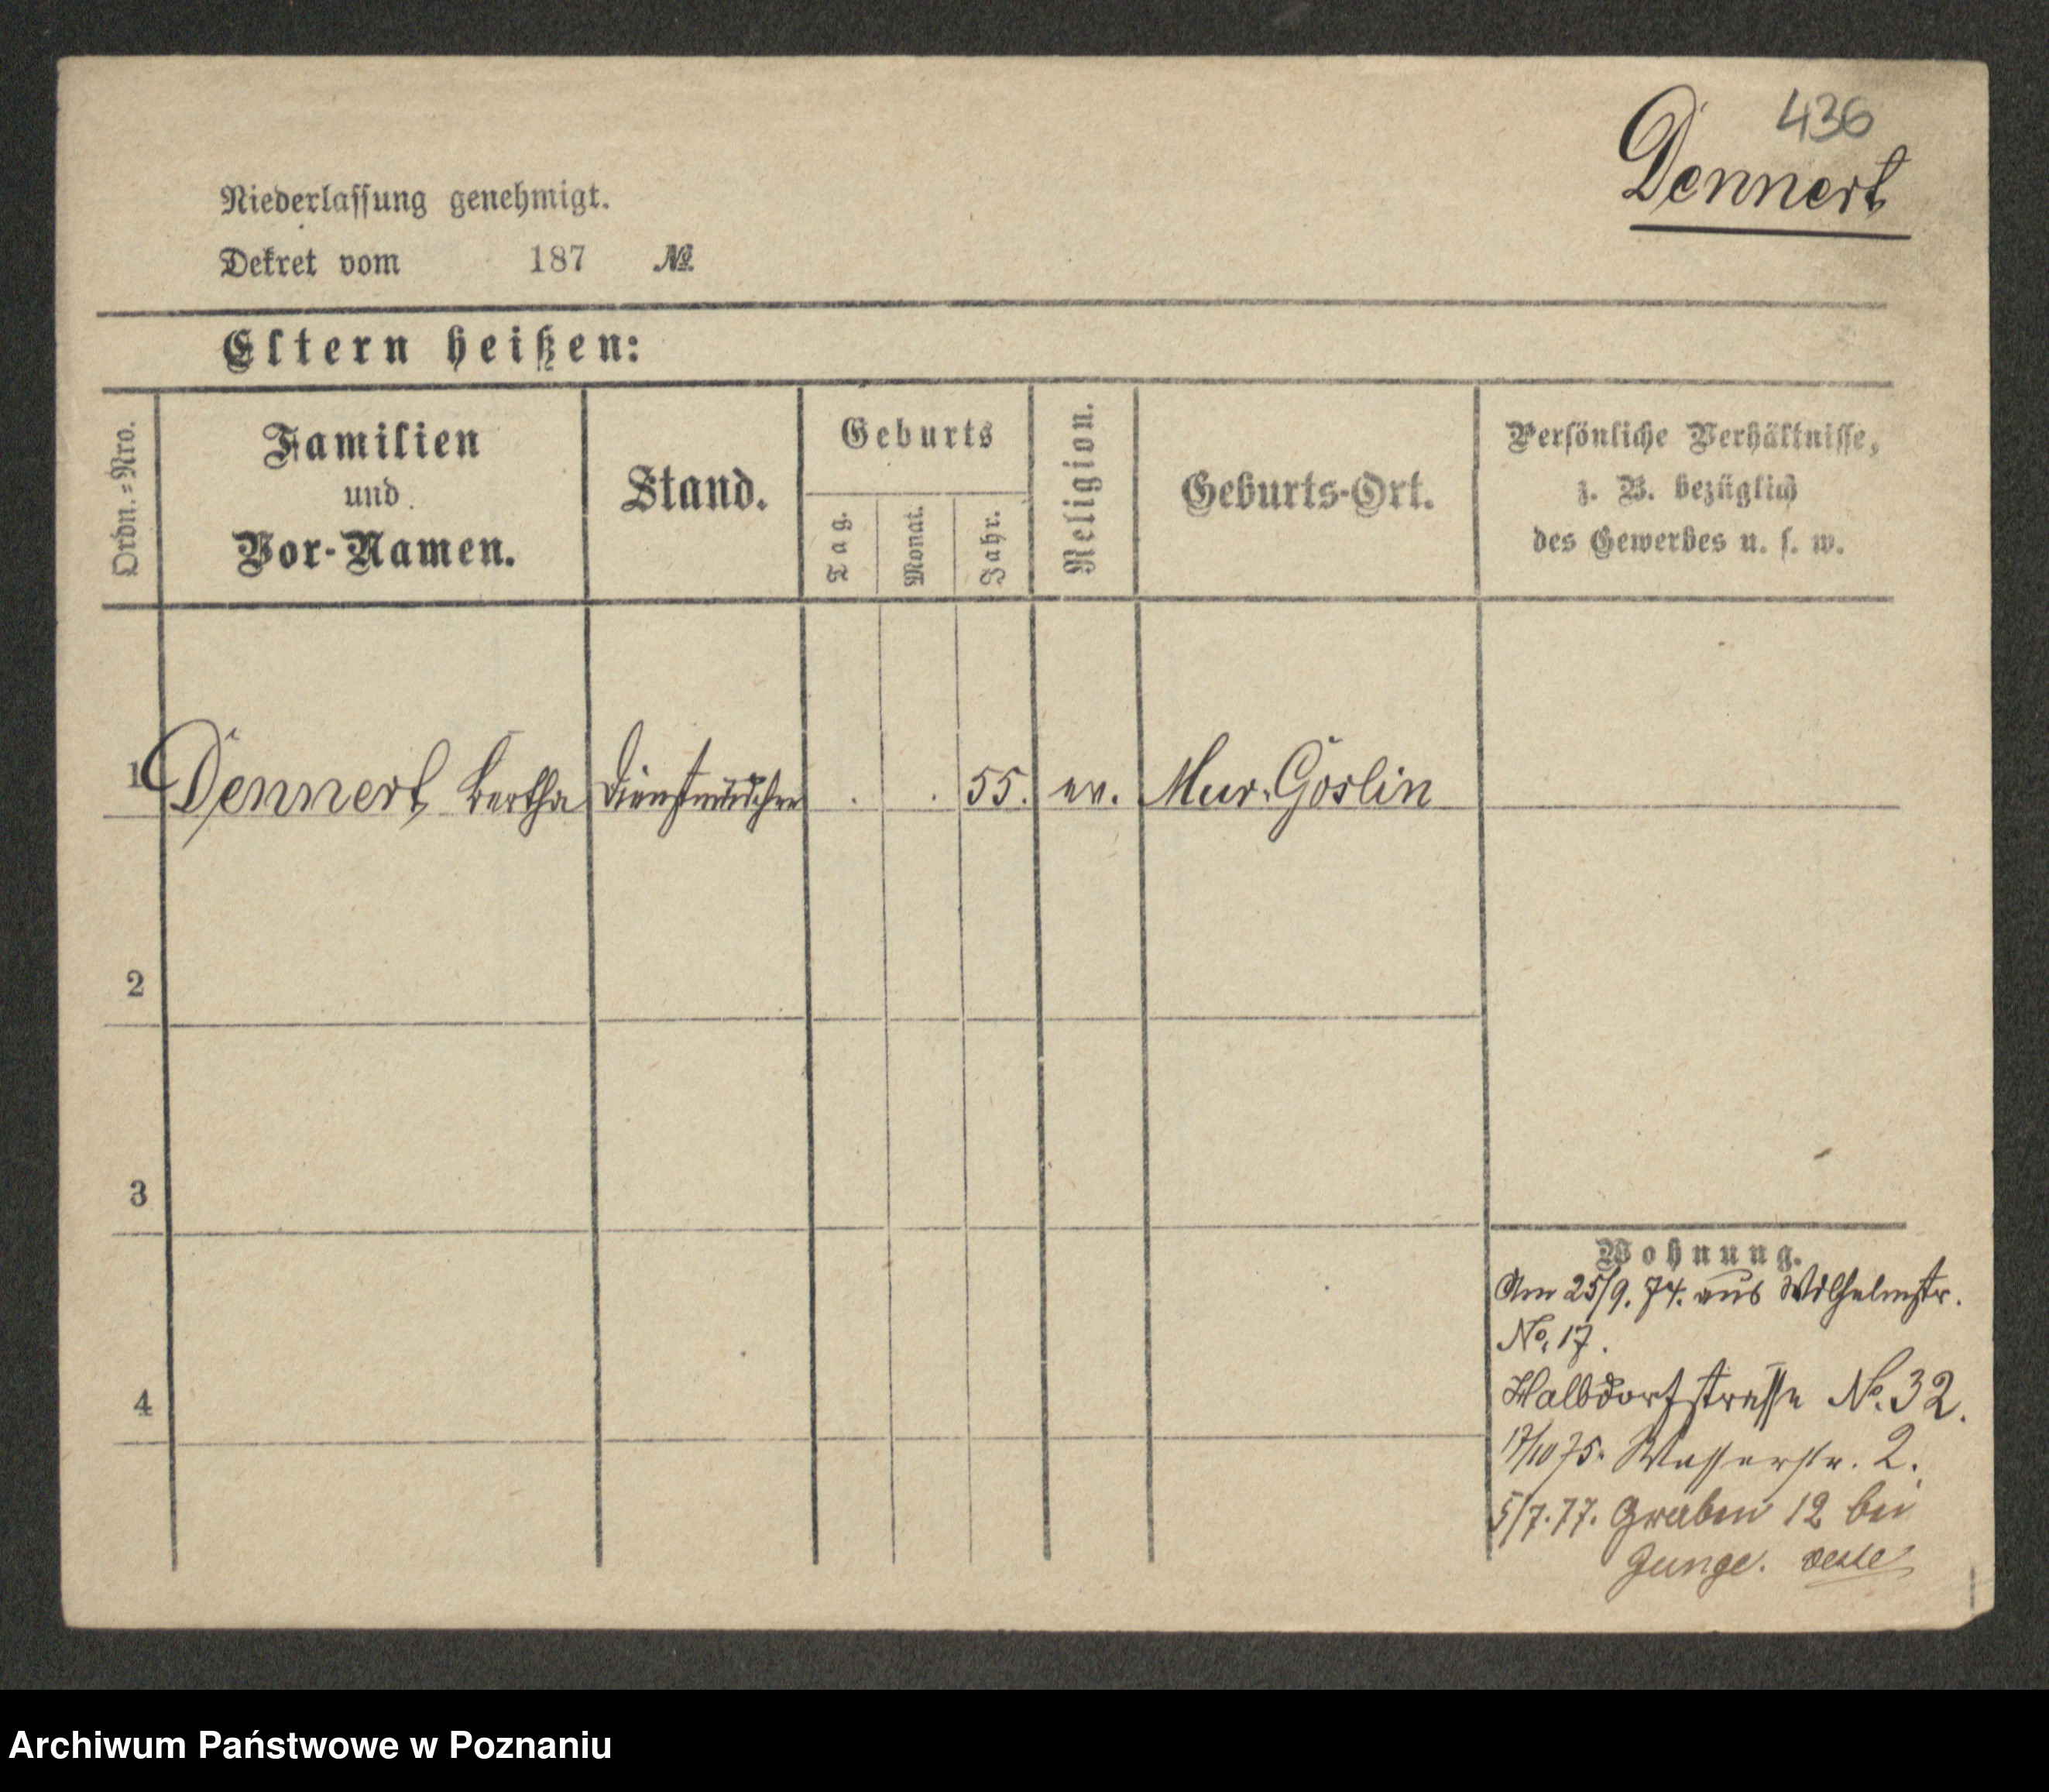 436
Dennert
Niederlassung genehmigt.
Dekret vom 187 №
Eltern heißen:
Ordn.=Nro.
Familien
und
Vor-Namen.
Stand.
Geburts
Tag.
Monat.
Jahr.
Religion.
Geburts-Ort.
Persönliche Verhältnisse,
z. B. bezüglich
des Gewerbes u. s. w.
1 Dennert Bertha Dienstmädchen . . 55. ev. Mur. Goslin
2
3
4
Wohnung.
Am 25/9. 74. aus Wilhelmstr.
No. 17.
Halbdorfstrasse No. 32.
17/10 75. Wasserstr. 2.
5/7. 77. Graben 12 bei
Junge.
Archiwum Państwowe w Poznaniu